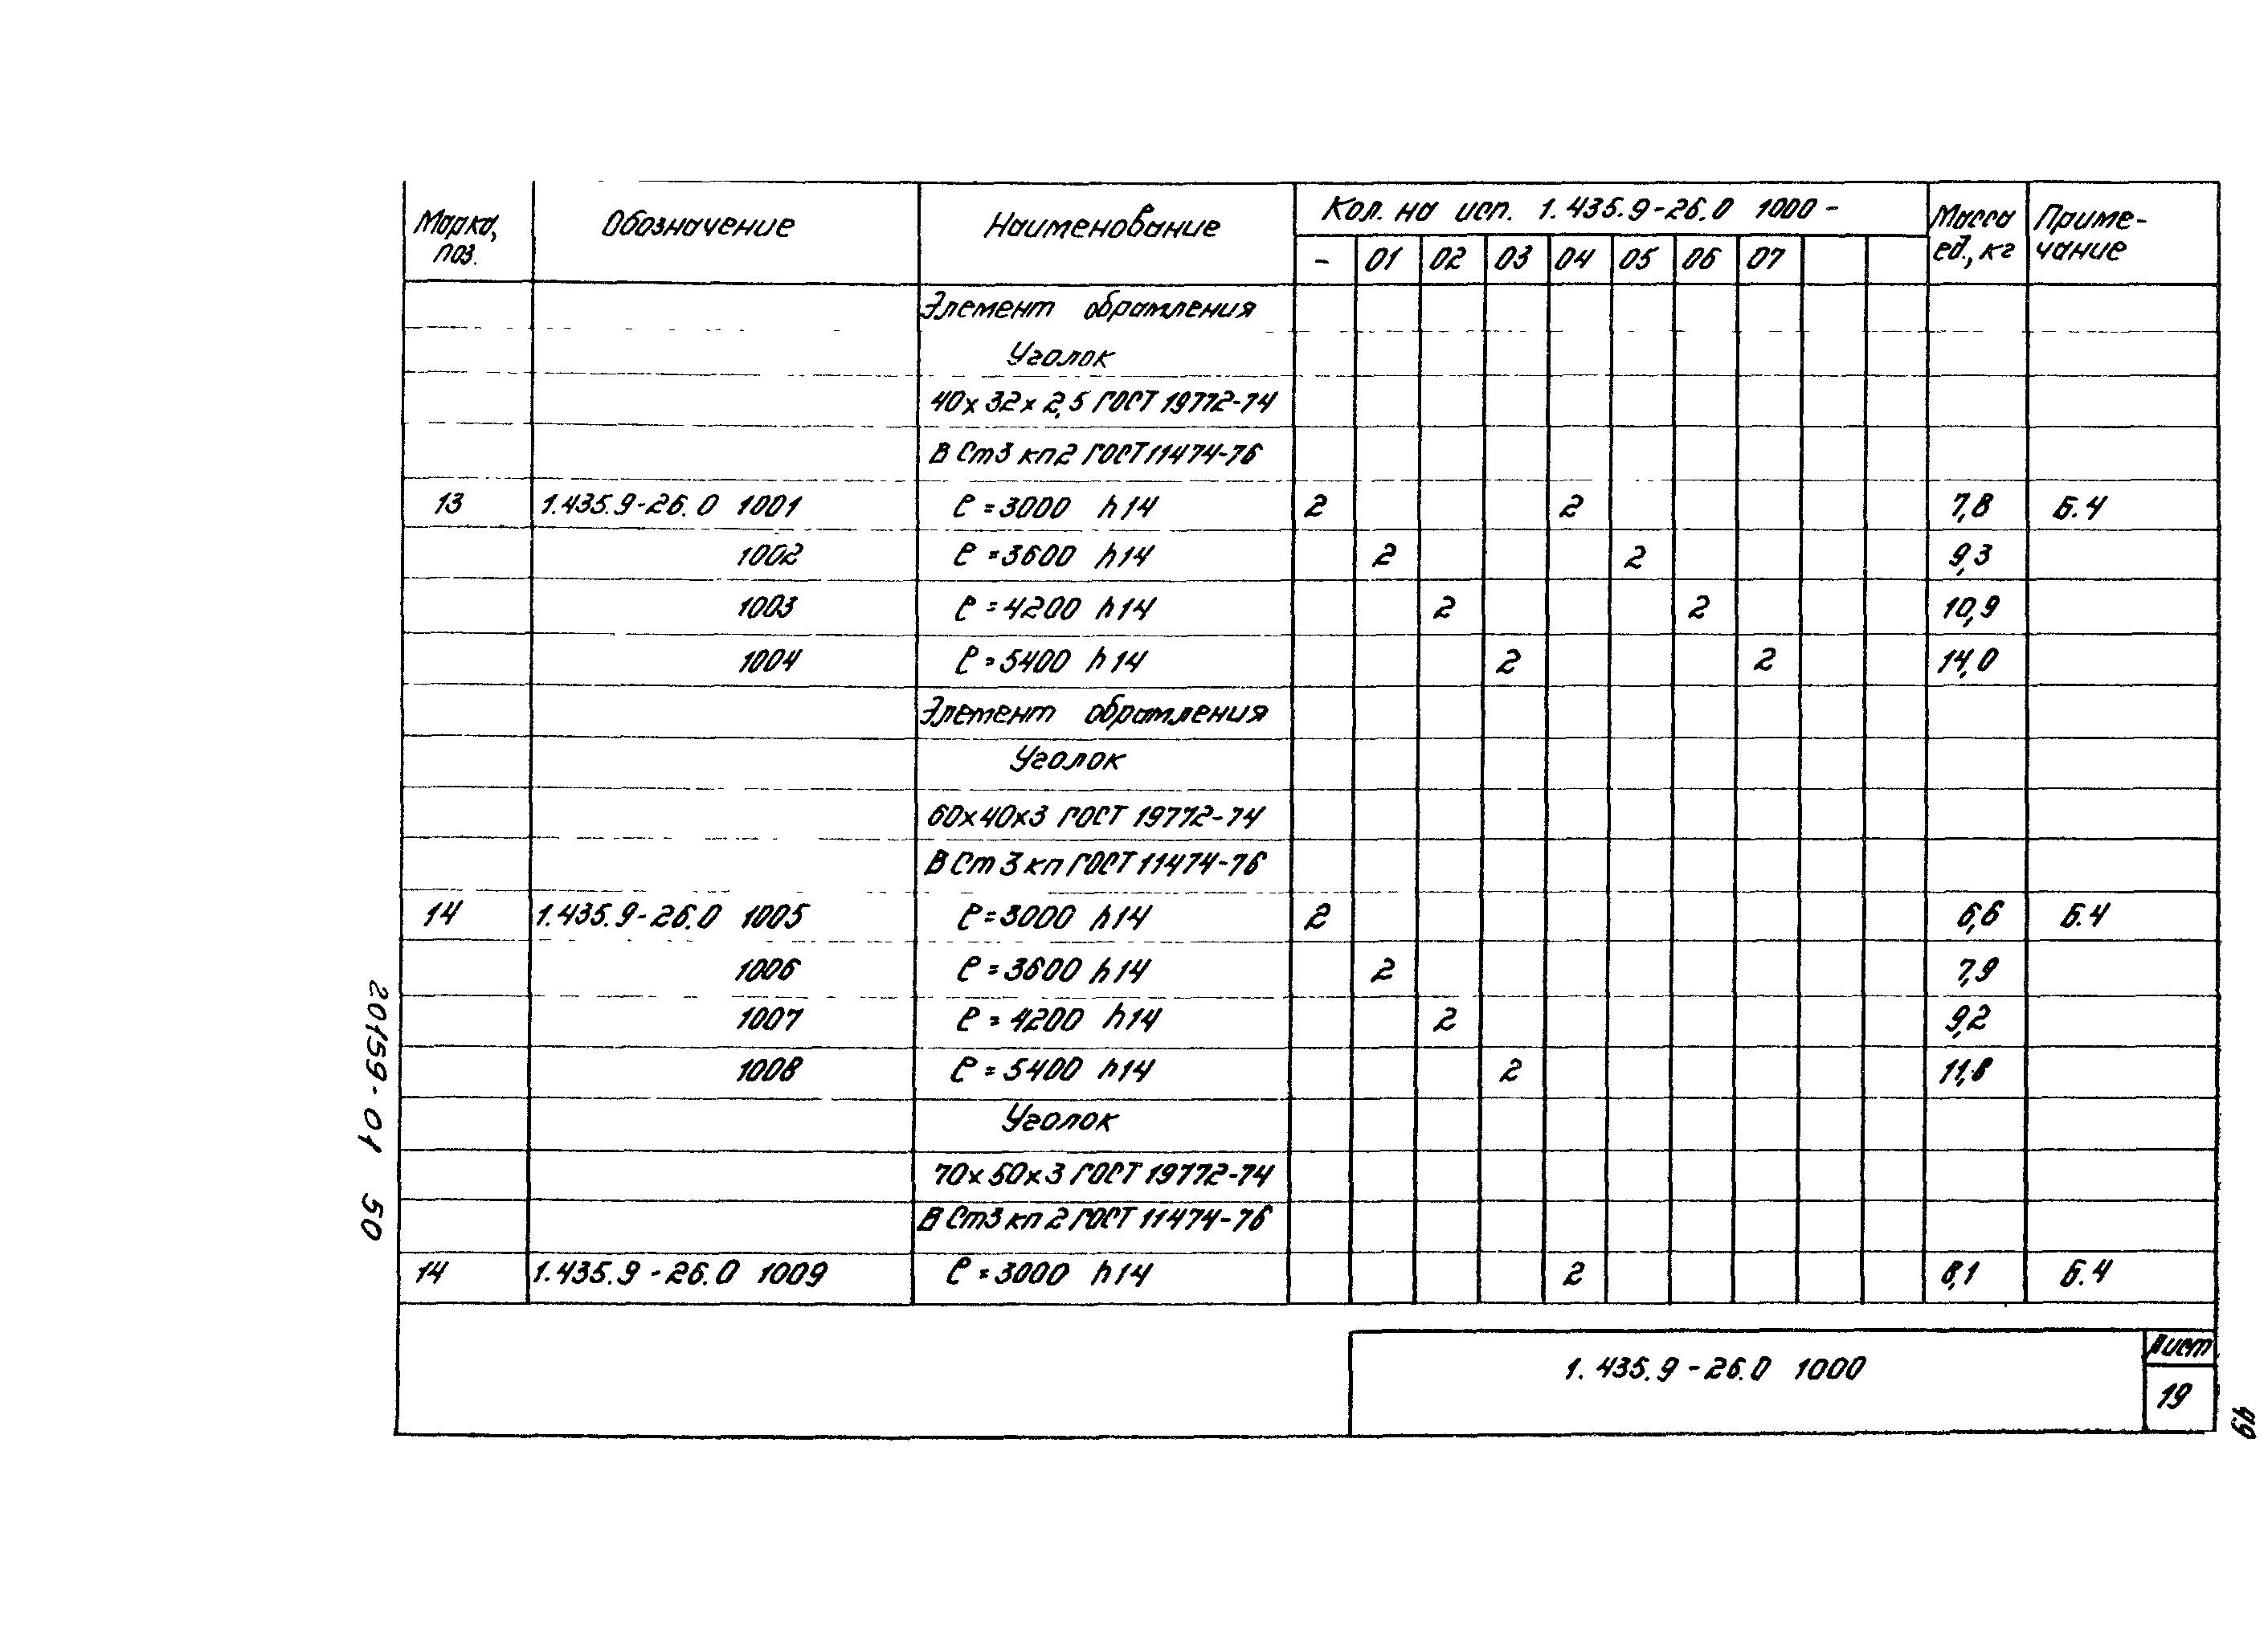 Марка, поз. Обозначение Наименование Кол. на исп. 1.435.9-26.0 1000- Масса ед., кг Приме-чание
- 01 02 03 04 05 06 07
Элемент обрамления
Уголок
40х32х2,5 ГОСТ 19772-74
В Ст3 кп2 ГОСТ 11474-76
13 1.435.9-26.0 1001 ℓ=3000 h14 2 2 7,8 Б.Ч
1002 ℓ=3600 h14 2 2 9,3
1003 ℓ=4200 h14 2 2 10,9
1004 ℓ=5400 h14 2 2 14,0
Элемент обрамления
Уголок
60х40х3 ГОСТ 19772-74
В Ст 3 кп ГОСТ 11474-76
14 1.435.9-26.0 1005 ℓ=3000 h14 2 6,6 Б.Ч
1006 ℓ=3600 h14 2 7,9
1007 ℓ=4200 h14 2 9,2
1008 ℓ=5400 h14 2 11,8
Уголок
70х50х3 ГОСТ 19772-74
В Ст3 кп 2 ГОСТ 11474-76
14 1.435.9-26.0 1009 ℓ=3000 h14 2 8,1 Б.Ч
1.435.9-26.0 1000
Лист
19
20159-01 50
49